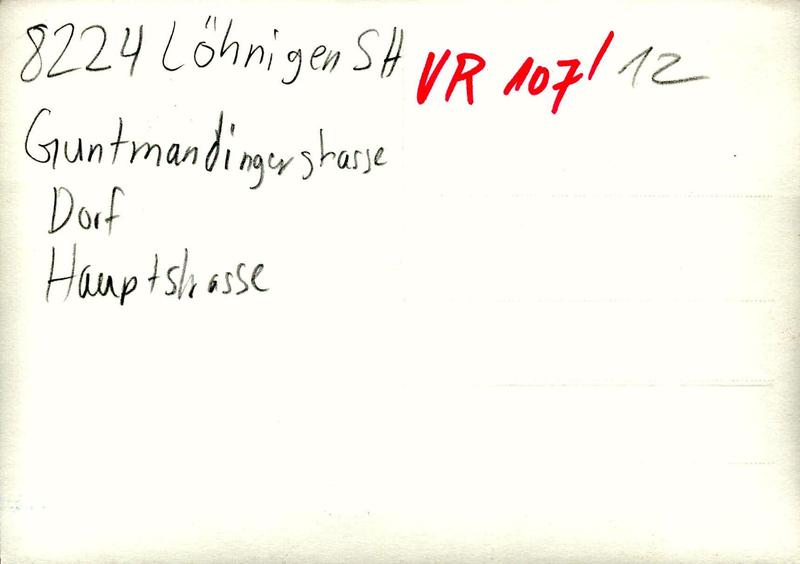 8224 Löhnigen SH VR 107/12
Guntmandingerstrasse
Dorf
Hauptstrasse